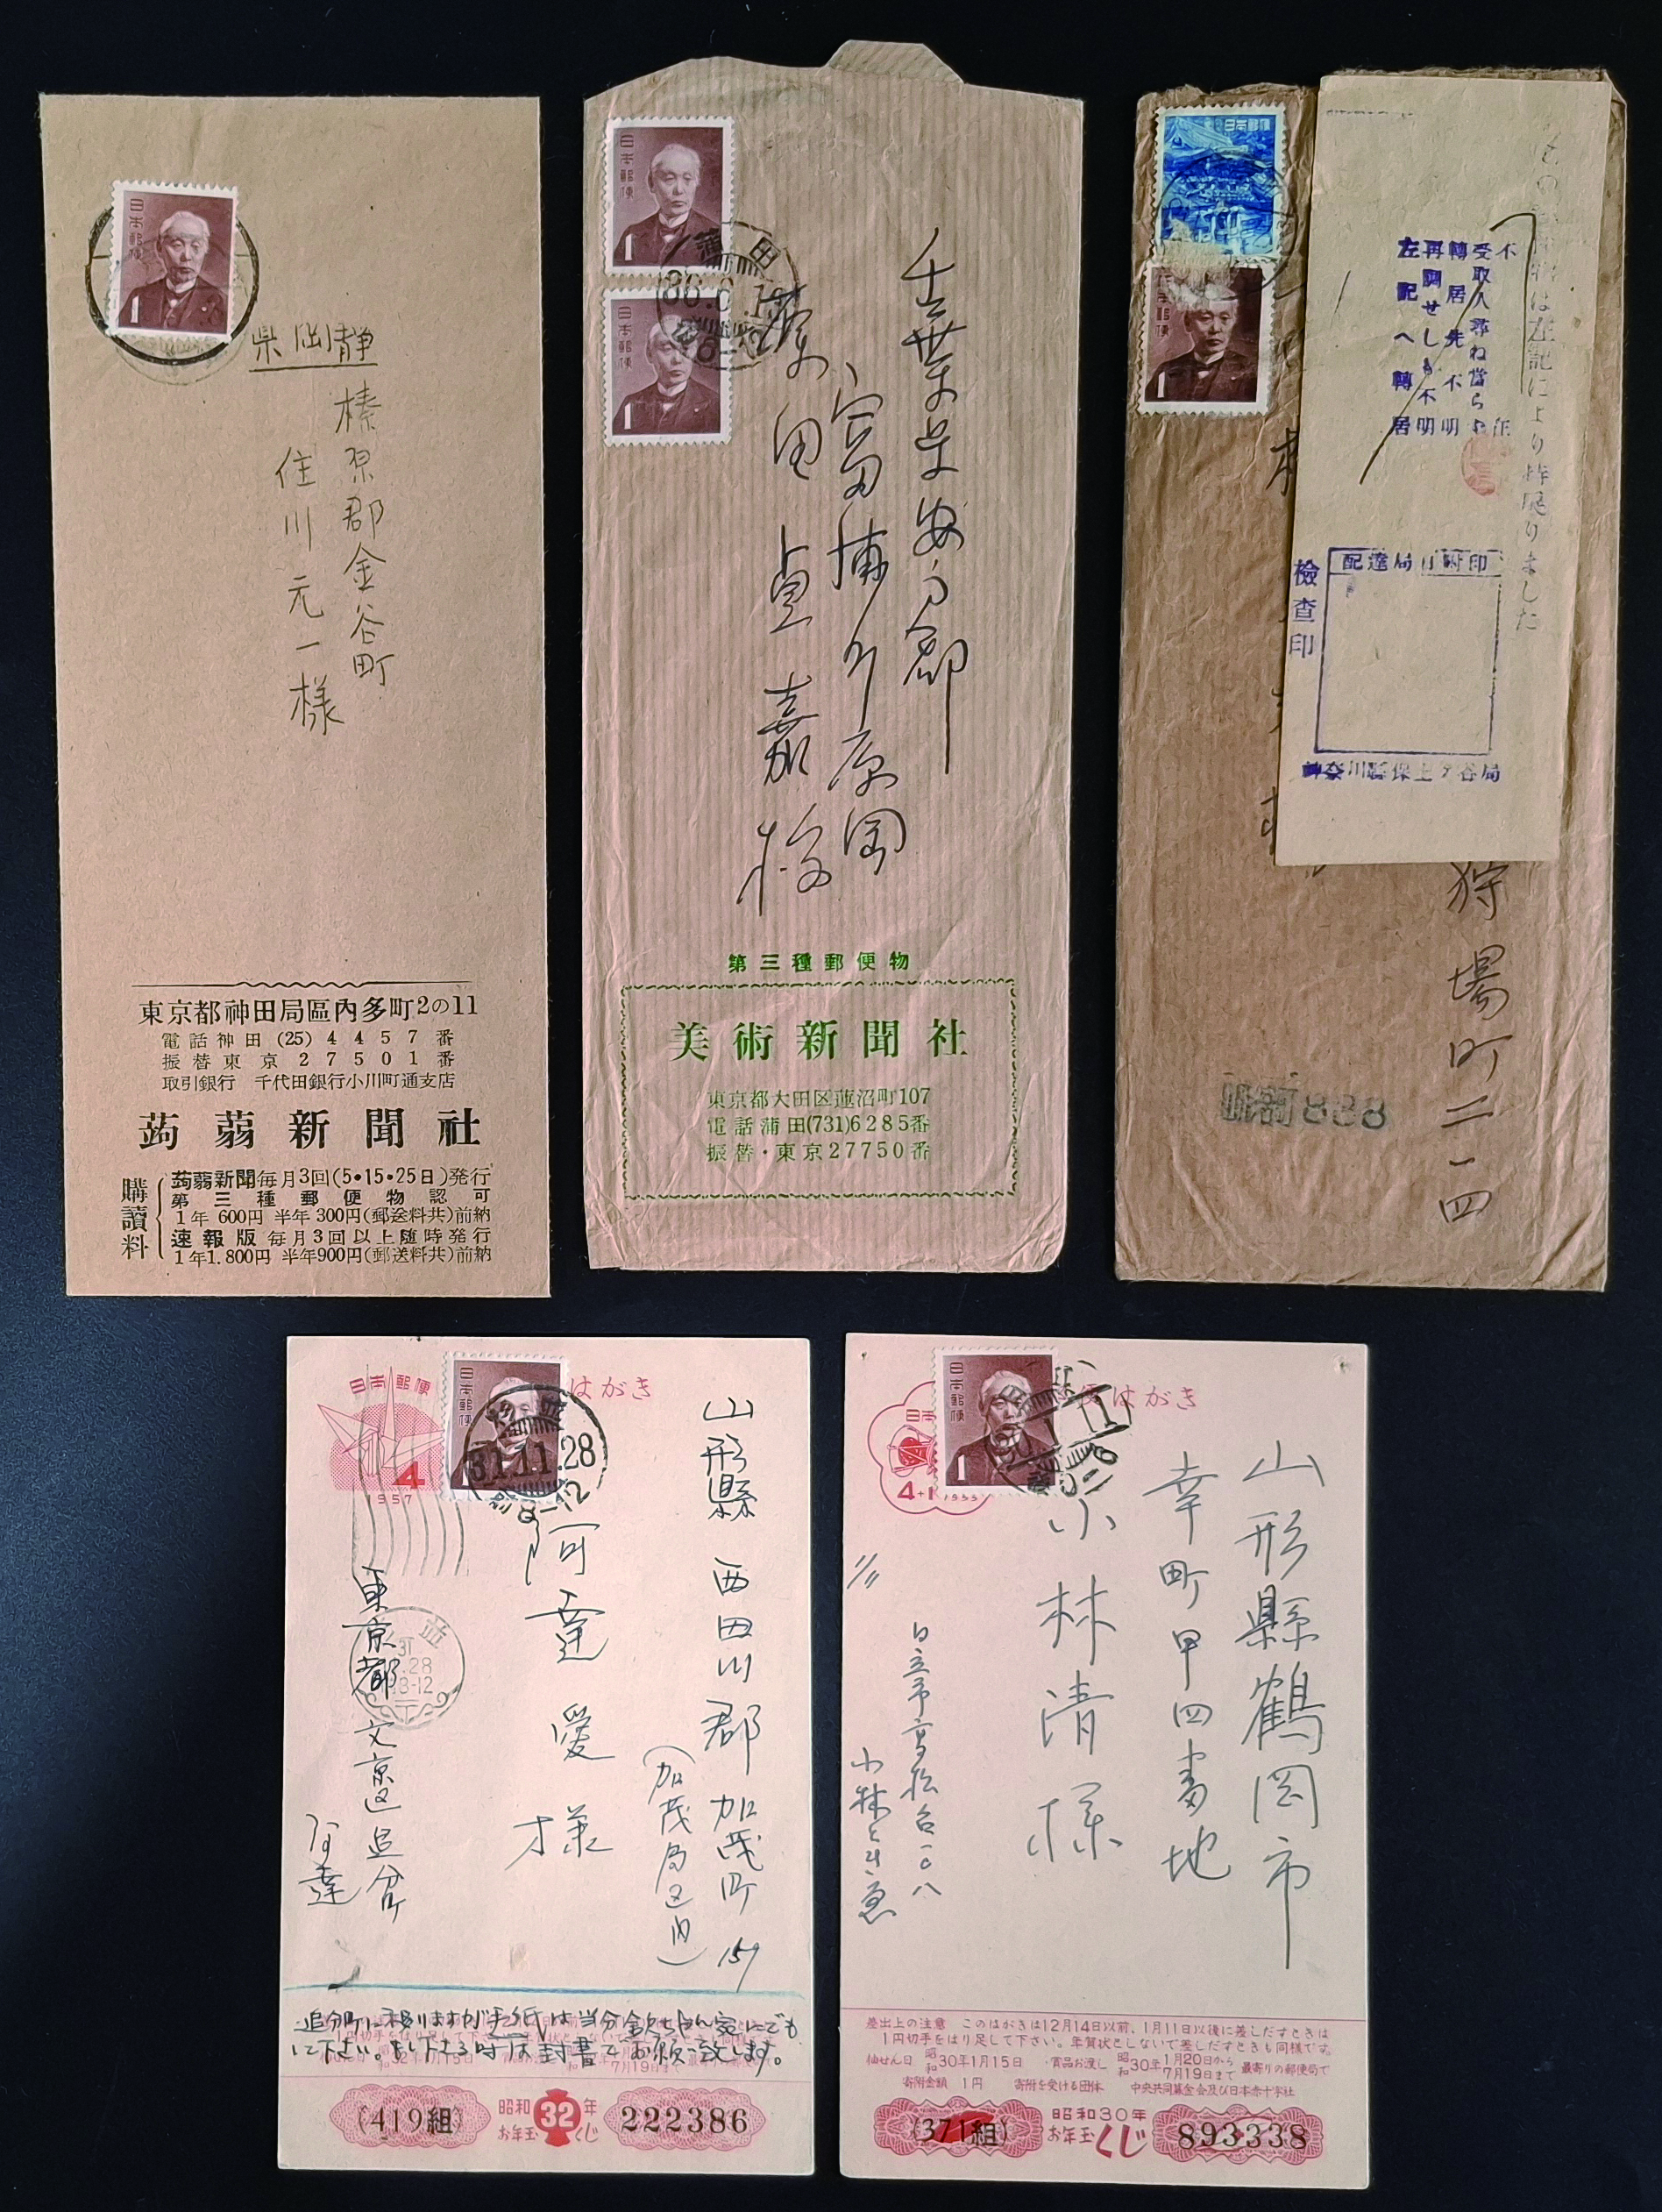 日本郵便
1
静岡県
榛原郡金谷町
住川元一様
東京都神田局區內多町2の11
電話神田(25)4457番
振替東京27501番
取引銀行 千代田銀行小川町通支店
蒟蒻新聞社
購讀料
蒟蒻新聞毎月3回(5•15•25日)発行
第三種郵便物認可
1年 600円 半年 300円(郵送料共)前納
速報版 毎月3回以上随時発行
1年1.800円 半年900円(郵送料共)前納
日本郵便
1
日本郵便
1
蒲田
36.6.1
千葉県安房郡
富浦町原岡
原田貞嘉様
第三種郵便物
美術新聞社
東京都大田区蓮沼町107
電話蒲田(731)6285番
振替・東京27750番
日本郵便
1
は左記により持戻りました
不在
受取人尋ね當らず
轉居先不明
再調せしも不明
左記へ轉居
配達局日附印
檢査印
神奈川縣保土ケ谷局
狩場町二一四
888
日本郵便
はがき
4
1957
日本郵便
31.11.28
8-12
山形縣西田川郡加茂町151
(加茂局区内)
阿達愛様
東京都文京区追分町
阿達
31
.28
8-12
追分町に移りますが手紙は当分
下さい。
下さる時は封書でお願い致します。
(419組)
昭和32年
お年玉くじ
222386
日本郵便
1
便はがき
4+1
山形縣鶴岡市
幸町甲四番地
小林清様
日立市高松台一〇八
小林
差出上の注意 このはがきは12月14日以前、1月11日以後に差しだすときは
1円切手をはり足して下さい。年賀状としないで差しだすときも同様です。
抽せん日 昭和30年1月15日 賞品お渡し 昭和30年1月20日から7月19日まで 最寄りの郵便局で
寄附金額 1円 寄附を受ける団体 中央共同募金会及び日本赤十字社
(371組)
昭和30年
お年玉くじ
893338